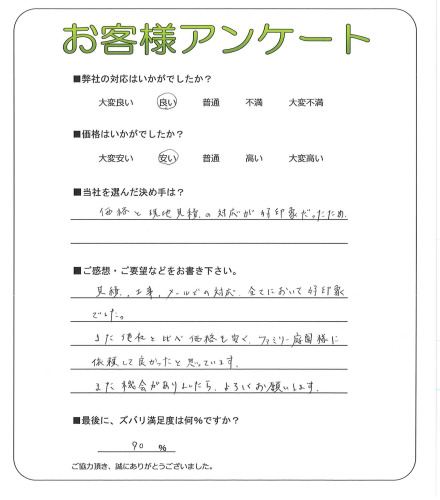 お客様アンケート
■弊社の対応はいかがでしたか？
大変良い 良い 普通 不満 大変不満
■価格はいかがでしたか？
大変安い 安い 普通 高い 大変高い
■当社を選んだ決め手は？
価格と現地見積の対応が好印象だったため.
■ご感想・ご要望などをお書き下さい。
見積、工事、メールでの対応、全てにおいて好印象
でした。
また他社と比べ価格も安く、ファミリー庭園様に
依頼して良かったと思っています.
また機会がありましたら、よろしくお願いします.
■最後に、ズバリ満足度は何%ですか？
90 %
ご協力頂き、誠にありがとうございました。